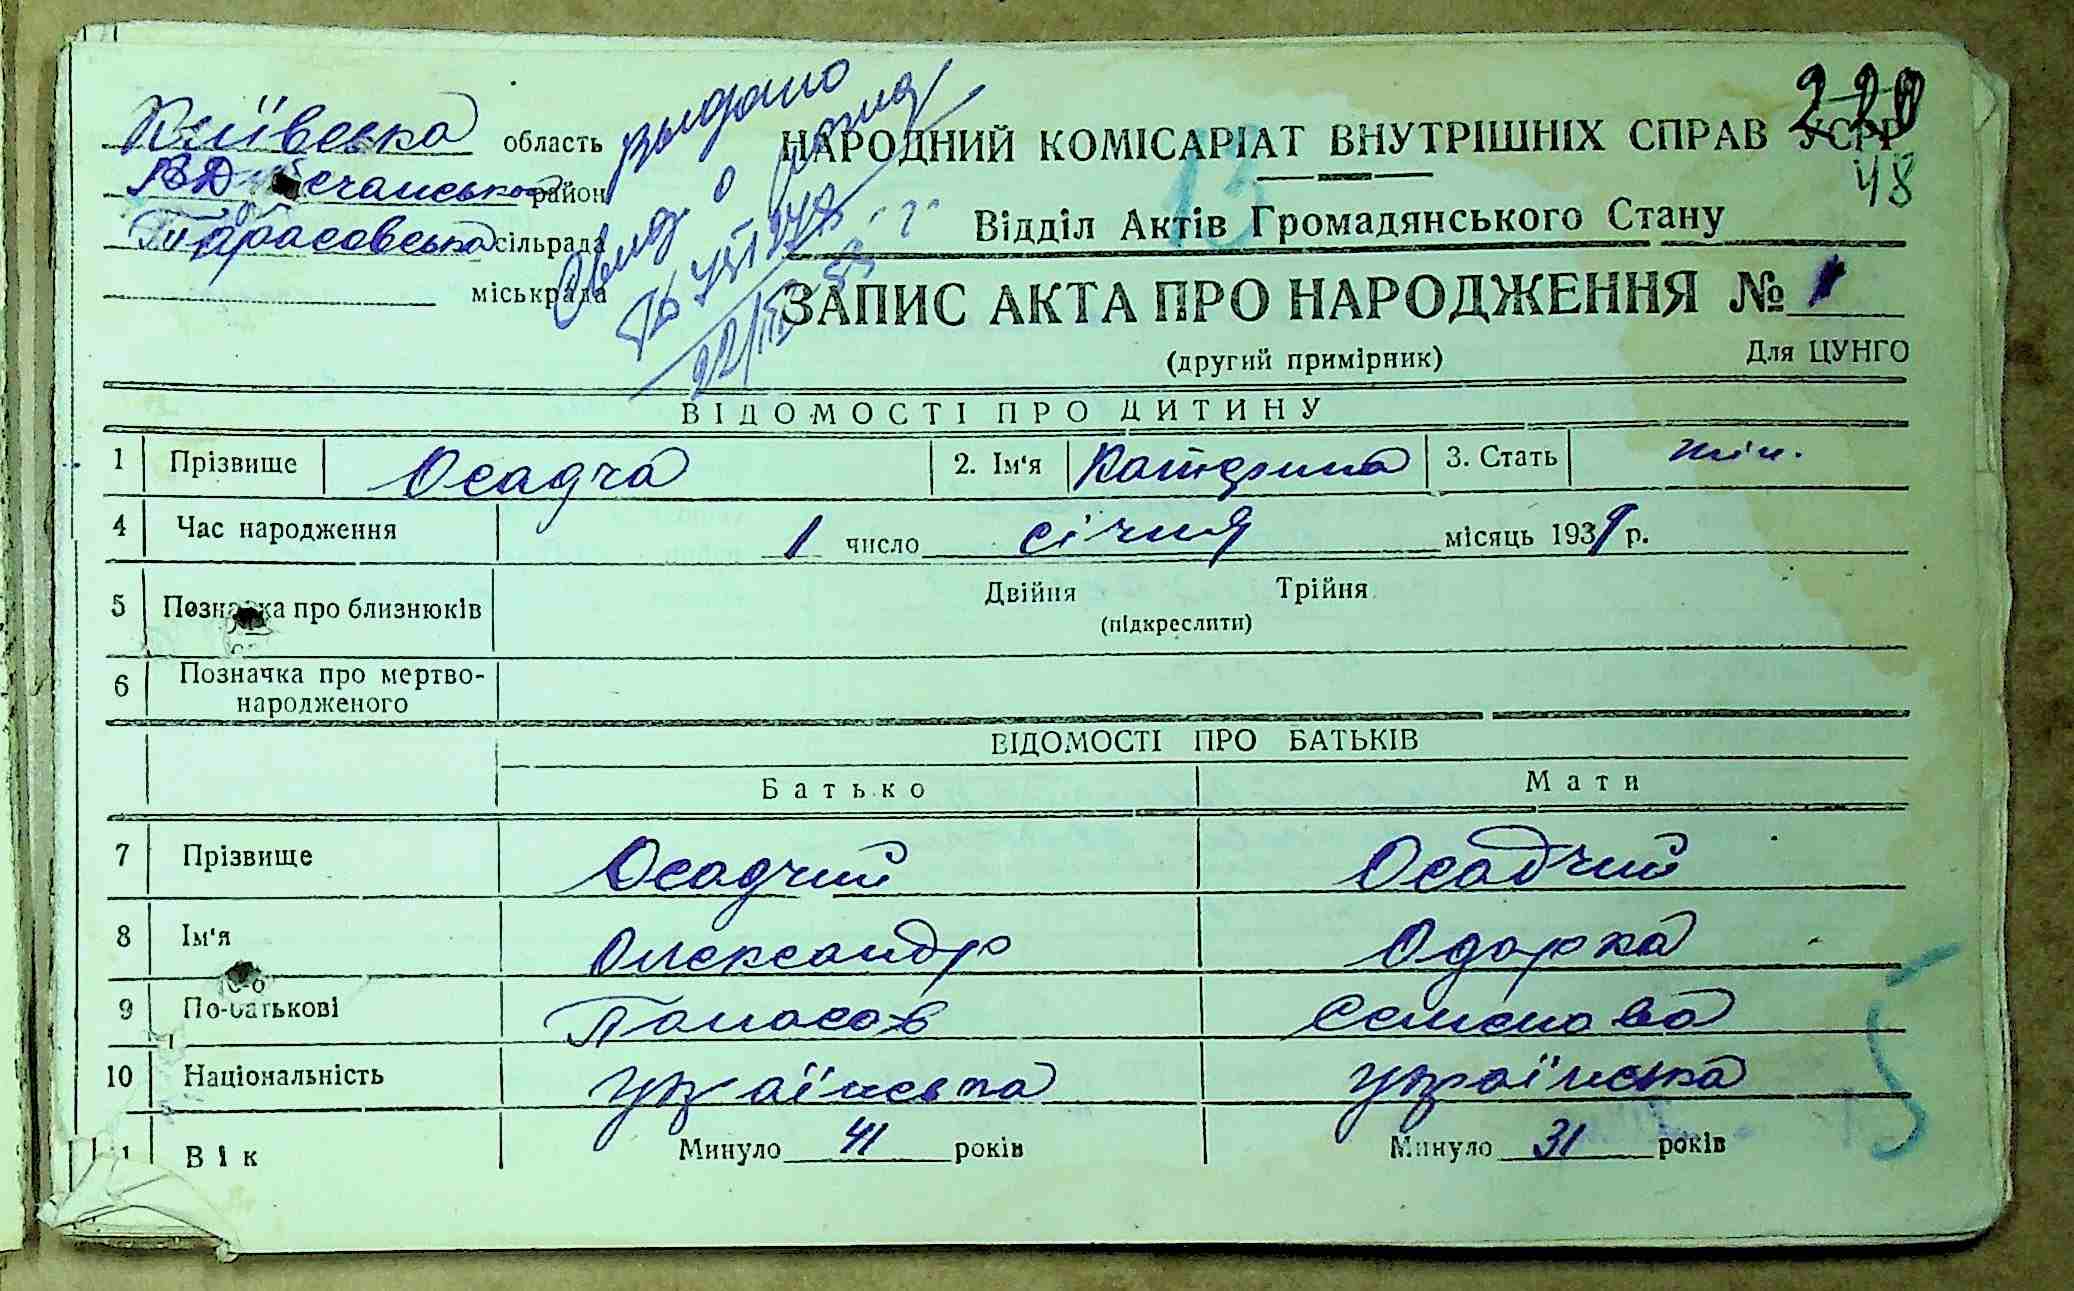 220
48
13
Київська область
В Д сечанський район
Тарасовська сільрада
міськрада
видано
НАРОДНИЙ КОМІСАРІАТ ВНУТРІШНІХ СПРАВ УСРР
Відділ Актів Громадянського Стану
ЗАПИС АКТА ПРО НАРОДЖЕННЯ № 1
(другий примірник) Для ЦУНГО
ВІДОМОСТІ ПРО ДИТИНУ
1 Прізвище Осадча 2. Ім'я Катерина 3. Стать жін.
4 Час народження 1 число січня місяць 1939 р.
5 Позначка про близнюків Двійня Трійня
(підкреслити)
6 Позначка про мертво-
народженого
ВІДОМОСТІ ПРО БАТЬКІВ
Батько Мати
7 Прізвище Осадчий Осадчий
8 Ім'я Олександр Одарка
9 По-батькові Панасов Семенова
10 Національність українська українська
11 Вік Минуло 41 років Минуло 31 років
5